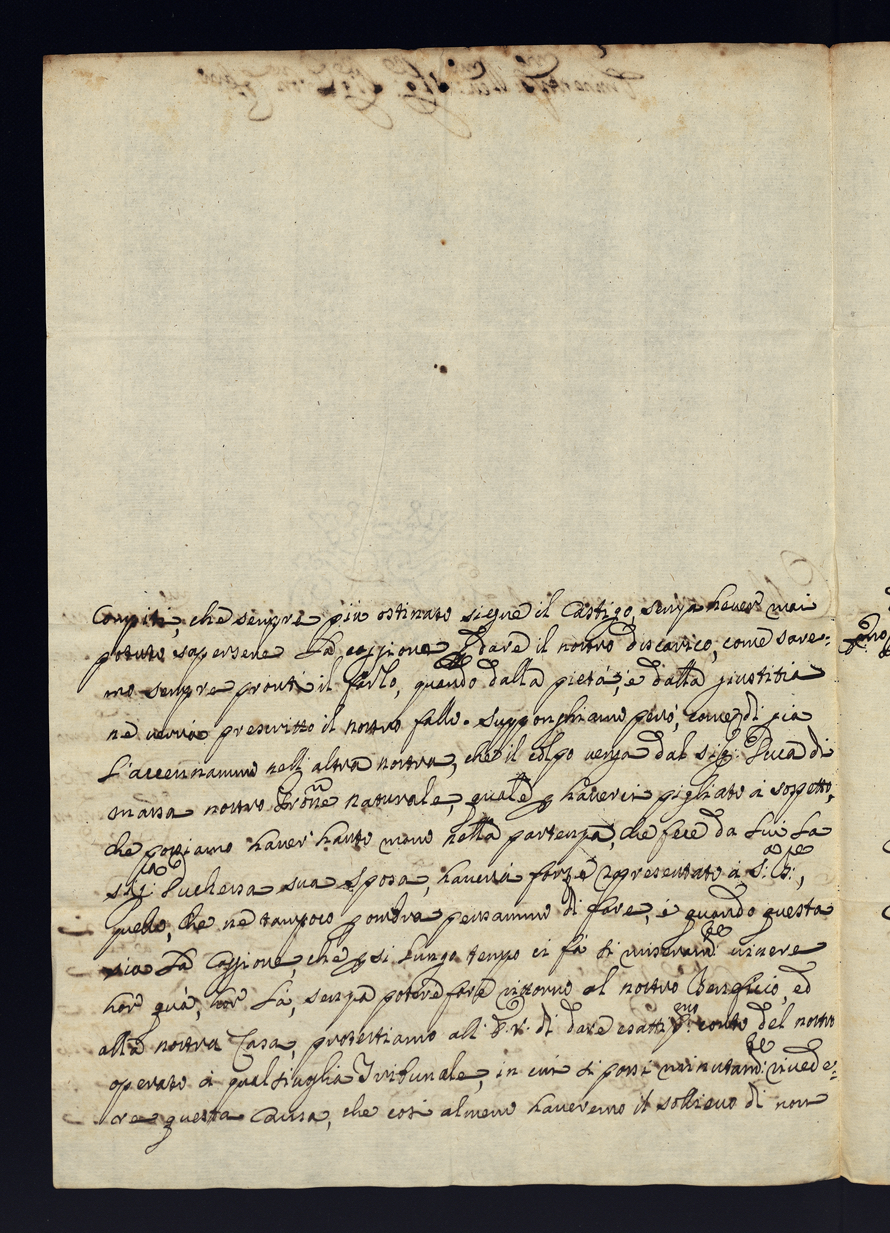 Compiti, che sempre più ostinato siegue il Castigo, senza haver mai
potuto sapersene la caggione p dare il nostro discarico, come sare=
mo sempre pronti il farlo, quando dalla pietà, è dalla giustitia
ne verrà prescritto il nostro fallo. Supponchiamo però, come di già
l'accennammo nell'altra nostra, che il colpo venga dal Sig.r Duca di
Massa nostro Prone naturale, quale p haverci pigliato à sospetto,
che possiamo haver havuto mano nella partenza, che fece da lui la
Sig.ra Duchessa sua sposa, haverrà forze rapresentato à S: B:,
quello, che nè tampoco p ombra pensammo di fare, è quando questa
sia la Caggione, che p si lungo tempo ci fà si miseram.te vivere
hor quà, hor là, senza potere fare ritorno al nostro Beneficio, ed
alla nostra Casa, protestiamo all' E.V. di dare esattis.mo conto del nostro
operato à qualsivoglia Tribunale, in cui si possi minutam.te rivede=
re questa Causa, che così almeno haveremo il sollievo di non